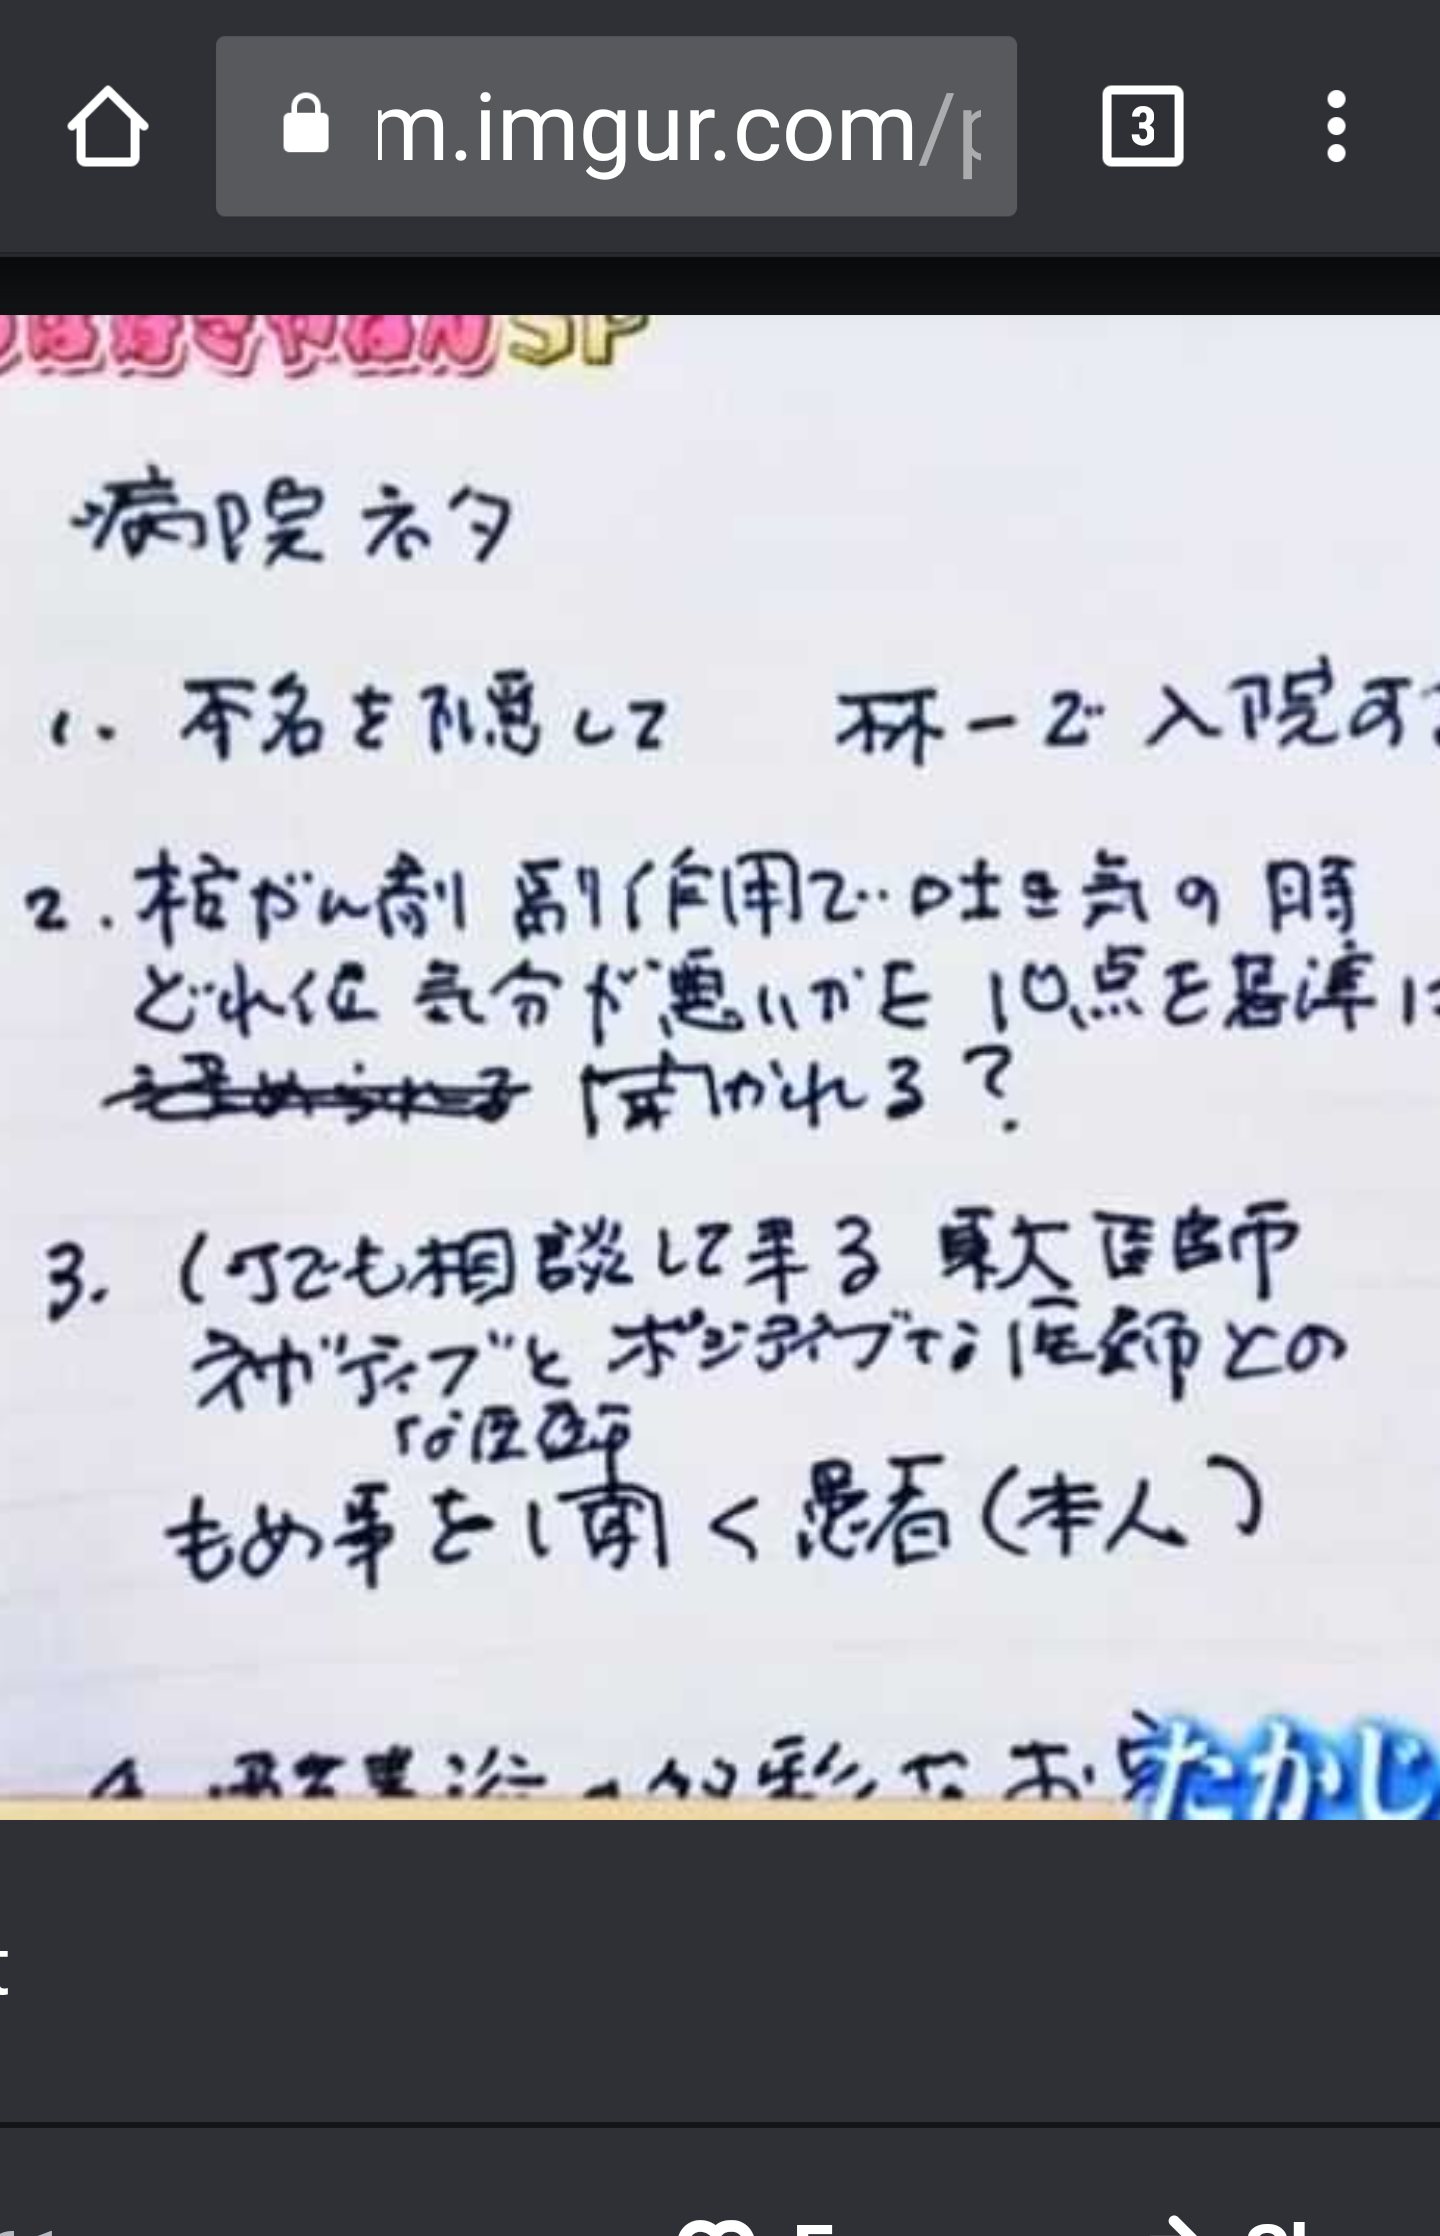 m.imgur.com/
3
は好きやねんSP
病院ネタ
1. 本名を隠して 林一で入院する
2. 抗がん剤副作用で吐き気の時
どれ位気分が悪いかを10点を基準に
聞かれる?
3. 何でも相談して来る東大医師
ネガティブとポジティブな医師との
な医師
もめ事を聞く患者(本人)
たかじ
t
5